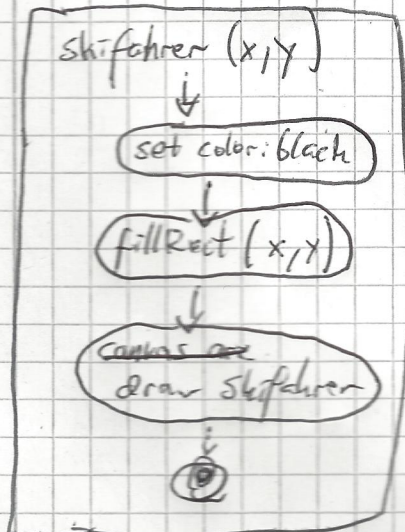 skifahrer (x,y)
set color: black
fillRect (x,y)
canvas
draw skifahrer